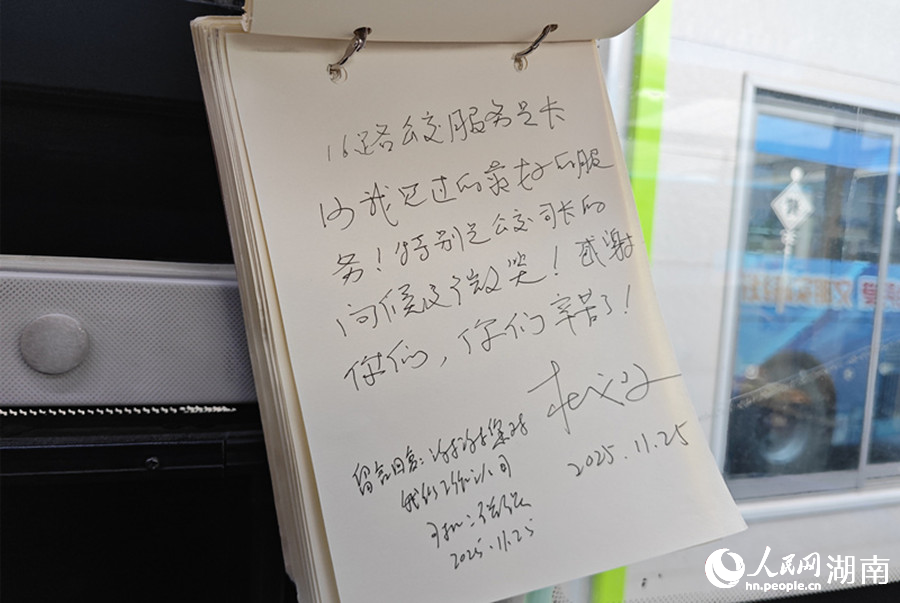 16路公交服务是长
沙我见过的最好的服
务！特别是公交司长的
问候及微笑！感谢
你们，你们辛苦了！
2025.11.25
留言回复：谢谢您对
我的工作认可
司机：
2025.11.25
人民网 湖南
hn.people.cn